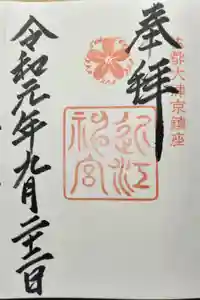 古都大津京鎮座
奉拝
近江
神宮
令和元年九月二十二日